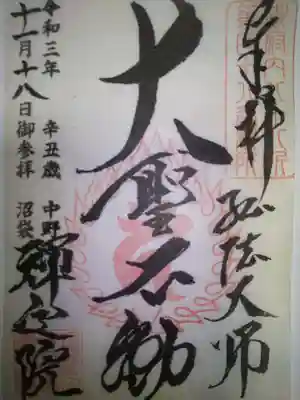 奉拝
弘法大師
大聖不動
令和三年 辛丑歳 中野
十一月十八日御参拝 沼袋
禪定院